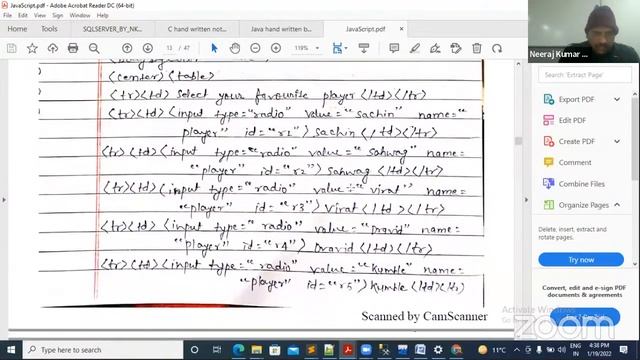 JavaScript.pdf - Adobe Acrobat Reader DC (64-bit)
Home Tools
SQLSERVER_BY_NK...
C hand written not...
Java hand written b...
JavaScript.pdf ×
13 / 47
119%
Neeraj Kumar ...
Search 'Extract Page'
Export PDF
Edit PDF
Create PDF
Comment
Combine Files
Organize Pages
Delete, insert, extract and
rotate pages.
Try now
Convert, edit and e-sign PDF
documents & agreements
<center> <table>
<tr><td> Select your favourite player </td></tr>
<tr><td> <input type="radio" value="sachin" name="
player" id="r1"> Sachin </td></tr>
<tr><td> <input type="radio" value="Sahwag" name=
"player" id="r2"> Sahwag </td></tr>
<tr><td> <input type="radio" value="virat" name=
"player" id="r3"> Virat </td></tr>
<tr><td> <input type="radio" value="Dravid" name=
"player" id="r4"> Dravid </td></tr>
<tr><td> <input type="radio" value="Kumble" name=
"player" id="r5"> Kumble </td></tr>
Scanned by CamScanner
Activate Windows
zoom
Type here to search
11°C
ENG
IN
4:38 PM
1/19/2022